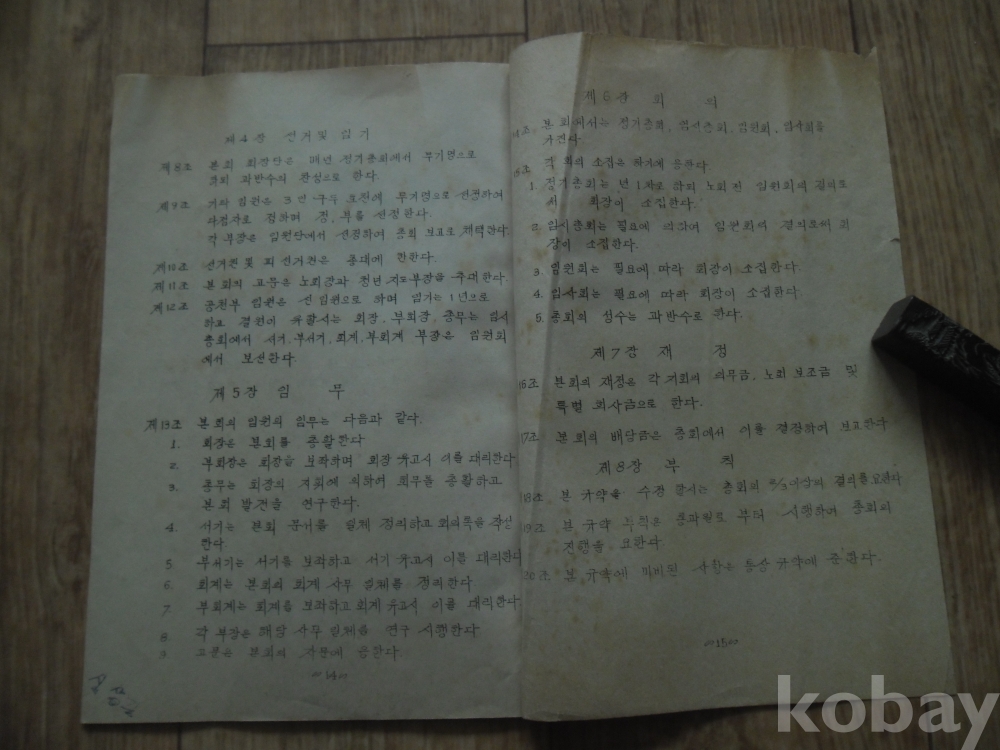 제4장 선거및 임기
제8조 본회 회장단은 매년 정기총회에서 무기명으로
과반수의 찬성으로 한다.
제9조 기타 임원은 3인 구두 호천에 무기명으로 선정하여
다점자로 정하며 정, 부를 선정한다.
각 부장은 임원단에서 선정하여 총회 보고로 채택한다.
제10조 선거권및 피 선거권은 총대에 한한다.
제11조 본회의 고문은 노회장과 청년 지도부장을 추대한다.
제12조 임원은 신 임원으로 하며 임기는 1년으로
하고 결원이 유할시는 회장, 부회장, 총무는 임시
총회에서 서기, 부서기, 회계, 부회계 부장은 임원회
에서 보선한다.
제5장 임 무
제13조 본회의 임원의 임무는 다음과 같다.
1. 회장은 본회를 총활한다
2. 부회장은 회장을 보좌하며 회장 유고시 이를 대리한다
3. 총무는 회장의 지휘에 의하여 회무를 총활하고
본회 발전을 연구한다.
4. 서기는 본회 문서를 일체 정리하고 회의록을 작성
한다.
5. 부서기는 서기를 보좌하고 서기 유고시 이를 대리한다
6. 회계는 본회의 회계 사무 일체를 정리한다.
7. 부회계는 회계를 보좌하고 회계 유고시 이를 대리한다.
8. 각 부장은 해당 사무 일체를 연구 시행한다
9. 고문은 본회의 자문에 응한다.
∽14∽
제6장 회 의
조 본회에서는 정기총회, 임시총회, 임원회, 임사회를
가진다.
15조 각 회의 소집은 하기에 응한다.
1. 정기총회는 년 1차로 하되 노회전 임원회의 결의로
서 회장이 소집한다.
2. 임시총회는 필요에 따라 임원회의 결의로써 회
장이 소집한다.
3. 임원회는 필요에 따라 회장이 소집한다.
4. 임사회는 필요에 따라 회장이 소집한다.
5. 총회의 성수는 과반수로 한다.
제7장 재 정
16조 본회의 재정은 각 지회의 의무금, 노회 보조금 및
특별 회사금으로 한다.
17조 본회의 배당금은 총회에서 이를 결정하여 보고한다
제8장 부 칙
18조 본 규약을 수정 할시는 총회의 2/3이상의 결의를 요한다
19조 본 규약 부칙은 통과일로 부터 시행하며 총회의
진행을 요한다.
20조 본 규약에 미비된 사항은 통상 규약에 준한다.
∽15∽
kobay